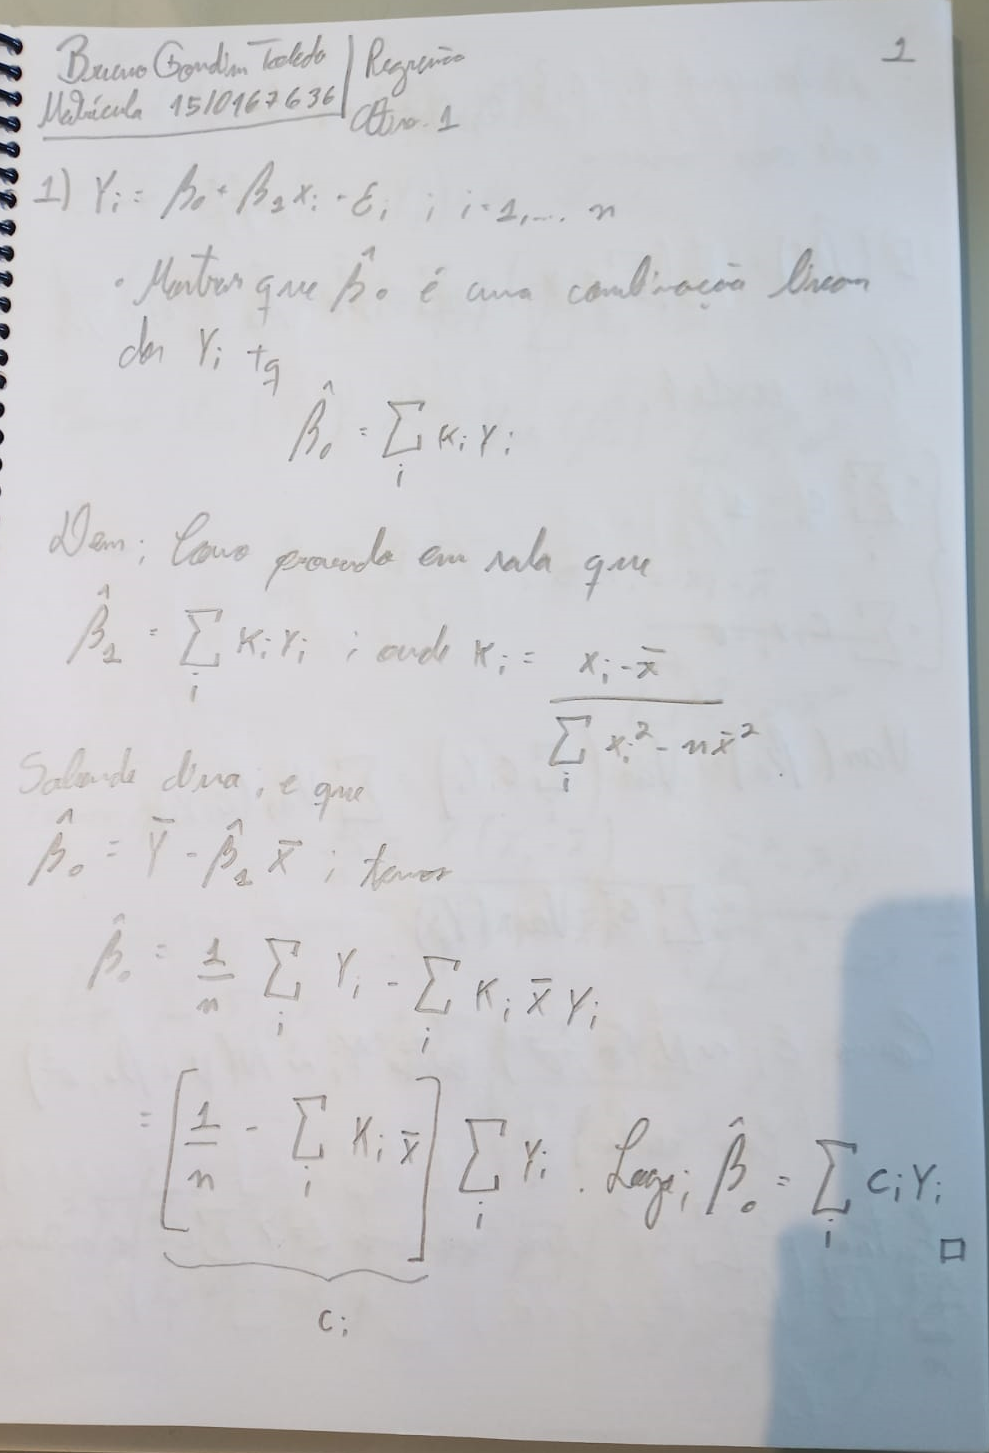 Bruno Gondim Toledo | Regressão 1
Matrícula 15/0167636 | Ativ. 1
1) Yi = β0 + β1 xi + εi ; i=1,... n
• Mostrar que β̂0 é uma combinação linear
dos Yi tq
β̂0 = Σi Ki Yi
Dem: Como provado em sala que
β̂1 = Σi Ki Yi ; onde Ki = (xi - x̄) / (Σi xi² - n x̄²).
Sabendo disso, e que
β̂0 = Ȳ - β̂1 x̄ ; temos
β̂0 = 1/n Σi Yi - Σi Ki x̄ Yi
= [1/n - Σi Ki x̄] Σi Yi . Logo; β̂0 = Σi ci Yi □
ci